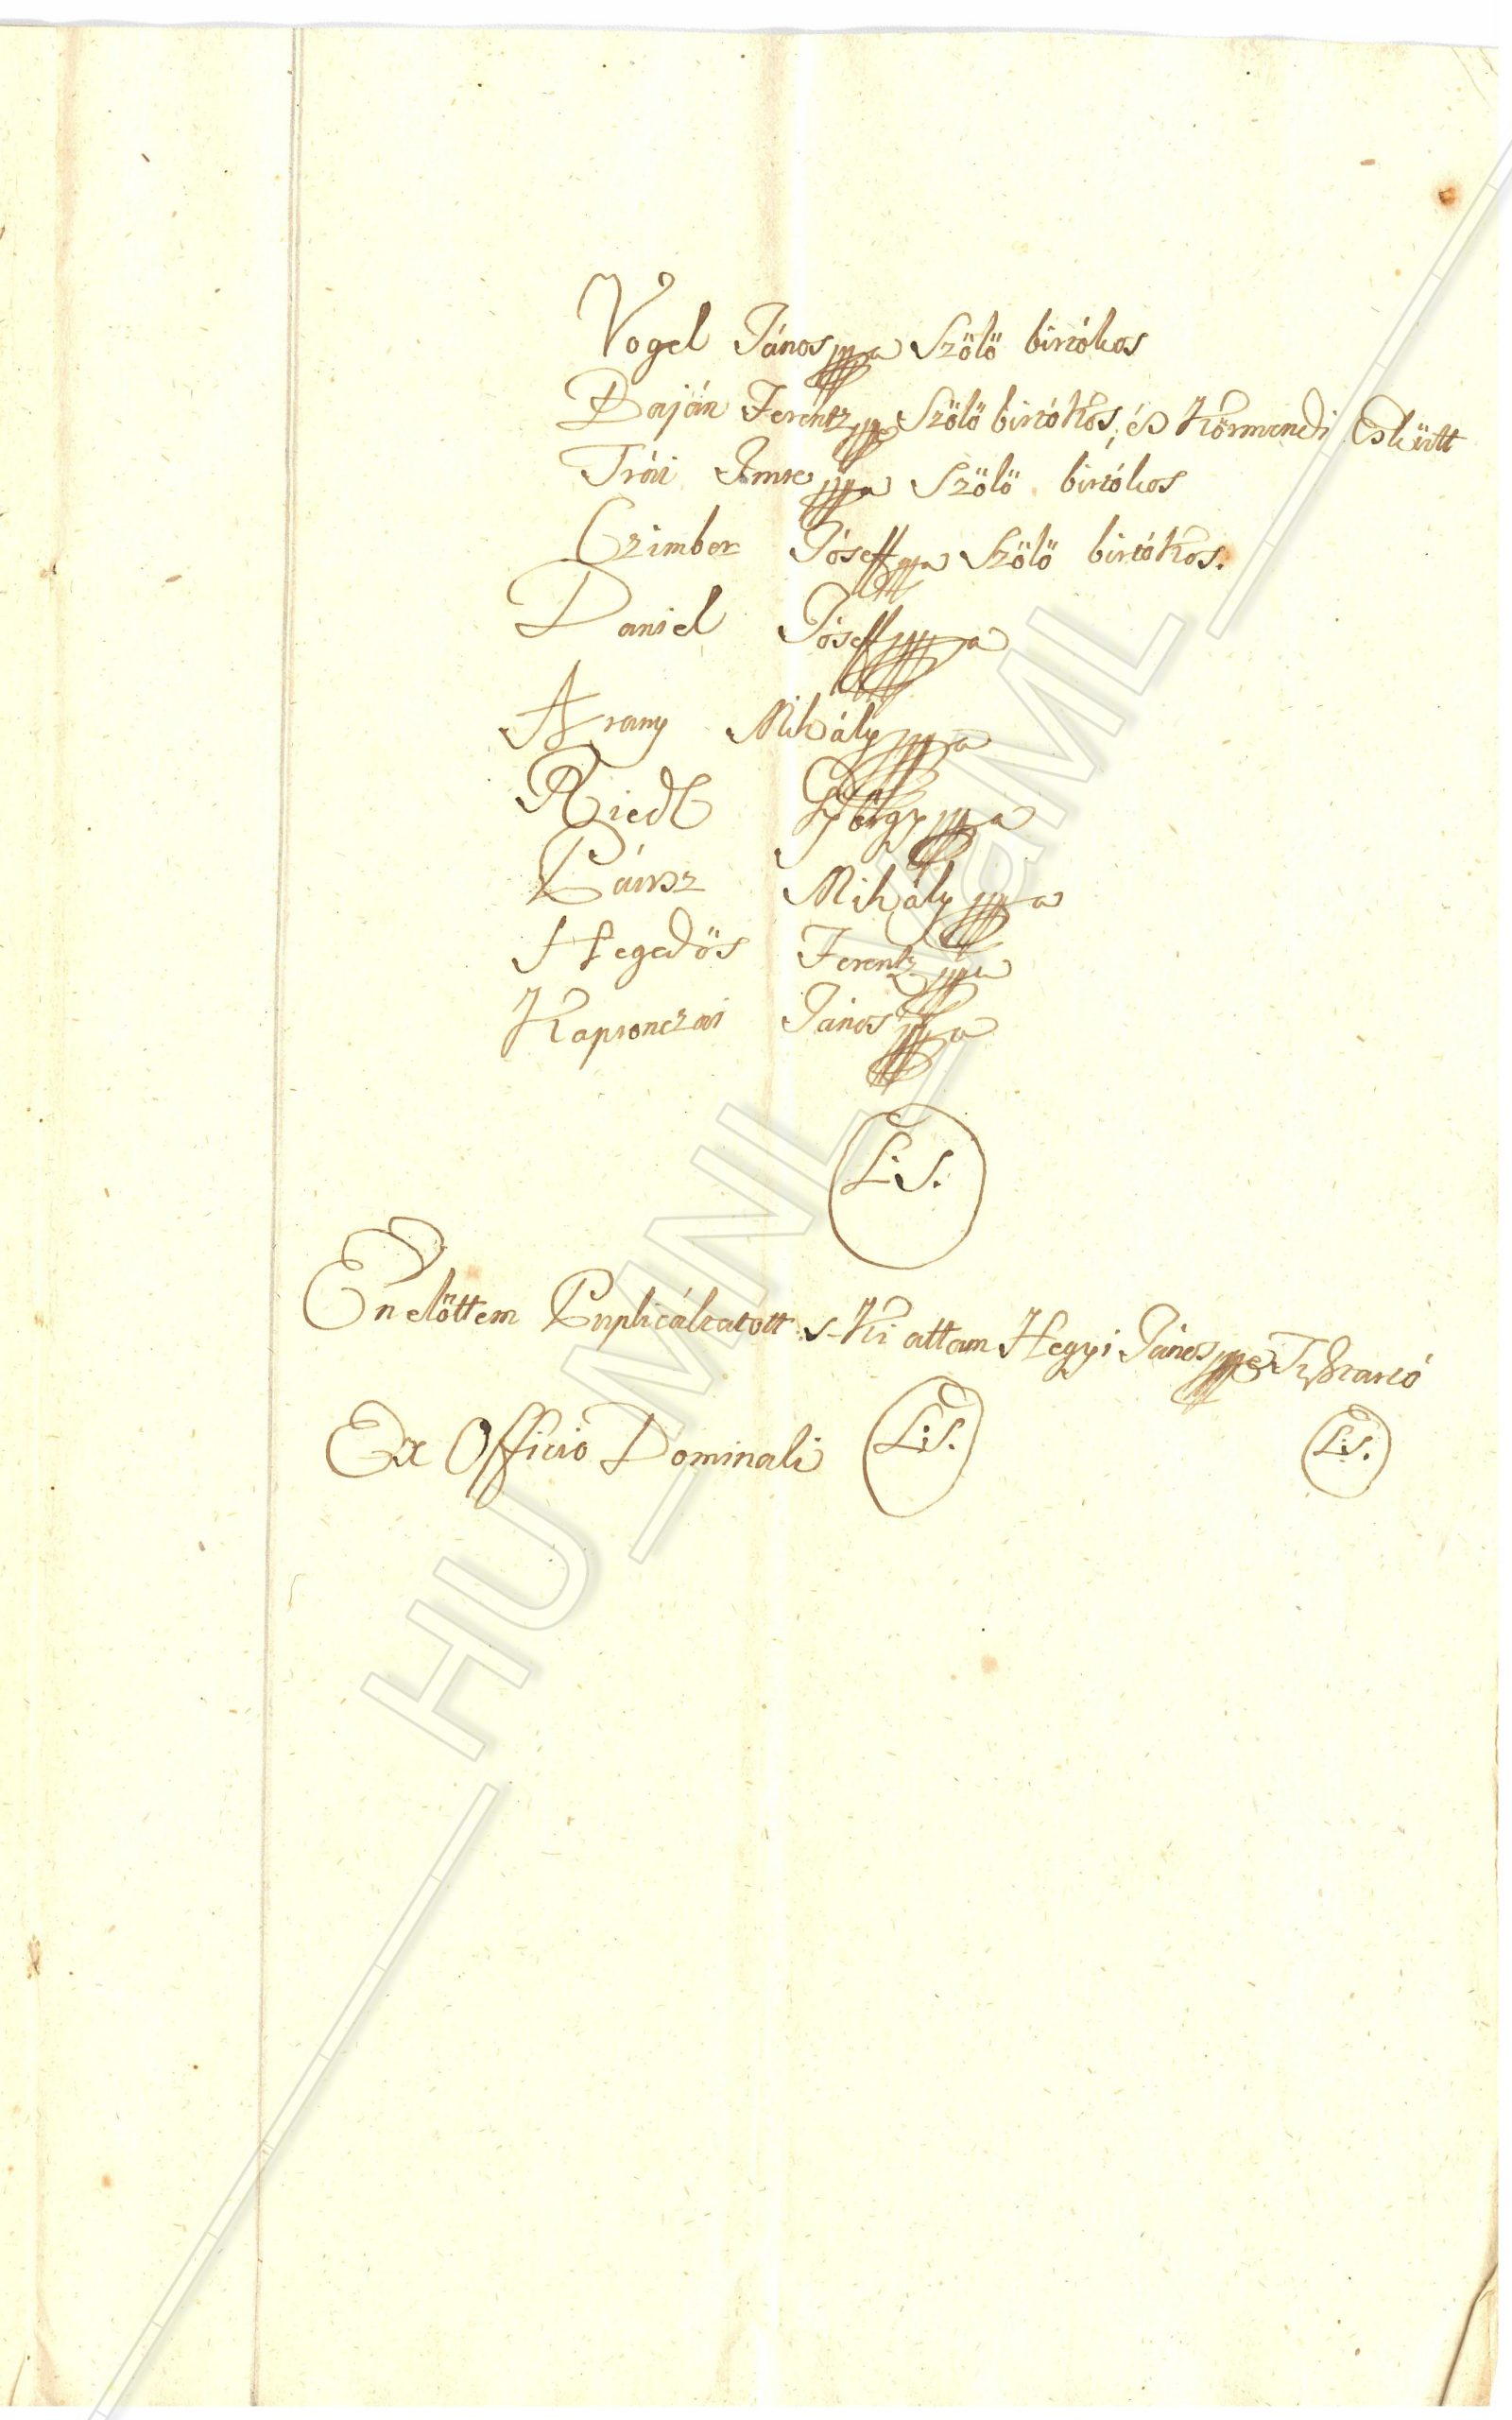 Vogel János mpa Szölö birtokos
Baján Ferentz mpa Szölö birtokos, és Körmendi Esküitt
Trói Imre mpa Szölö birtokos
Czimber Jóseff mpa Szölö birtokos.
Daniel Jóseff mpa
Arany Mihály mpa
Riedl György mpa
Mihály mpa
Hegedös Ferentz mpa
Kapronczai János mpa
L:S.
En elöttem s Ki attam Hegyi János mpa
Ex Officio Dominali L:S. L:S.
HU_MNL_VaML_